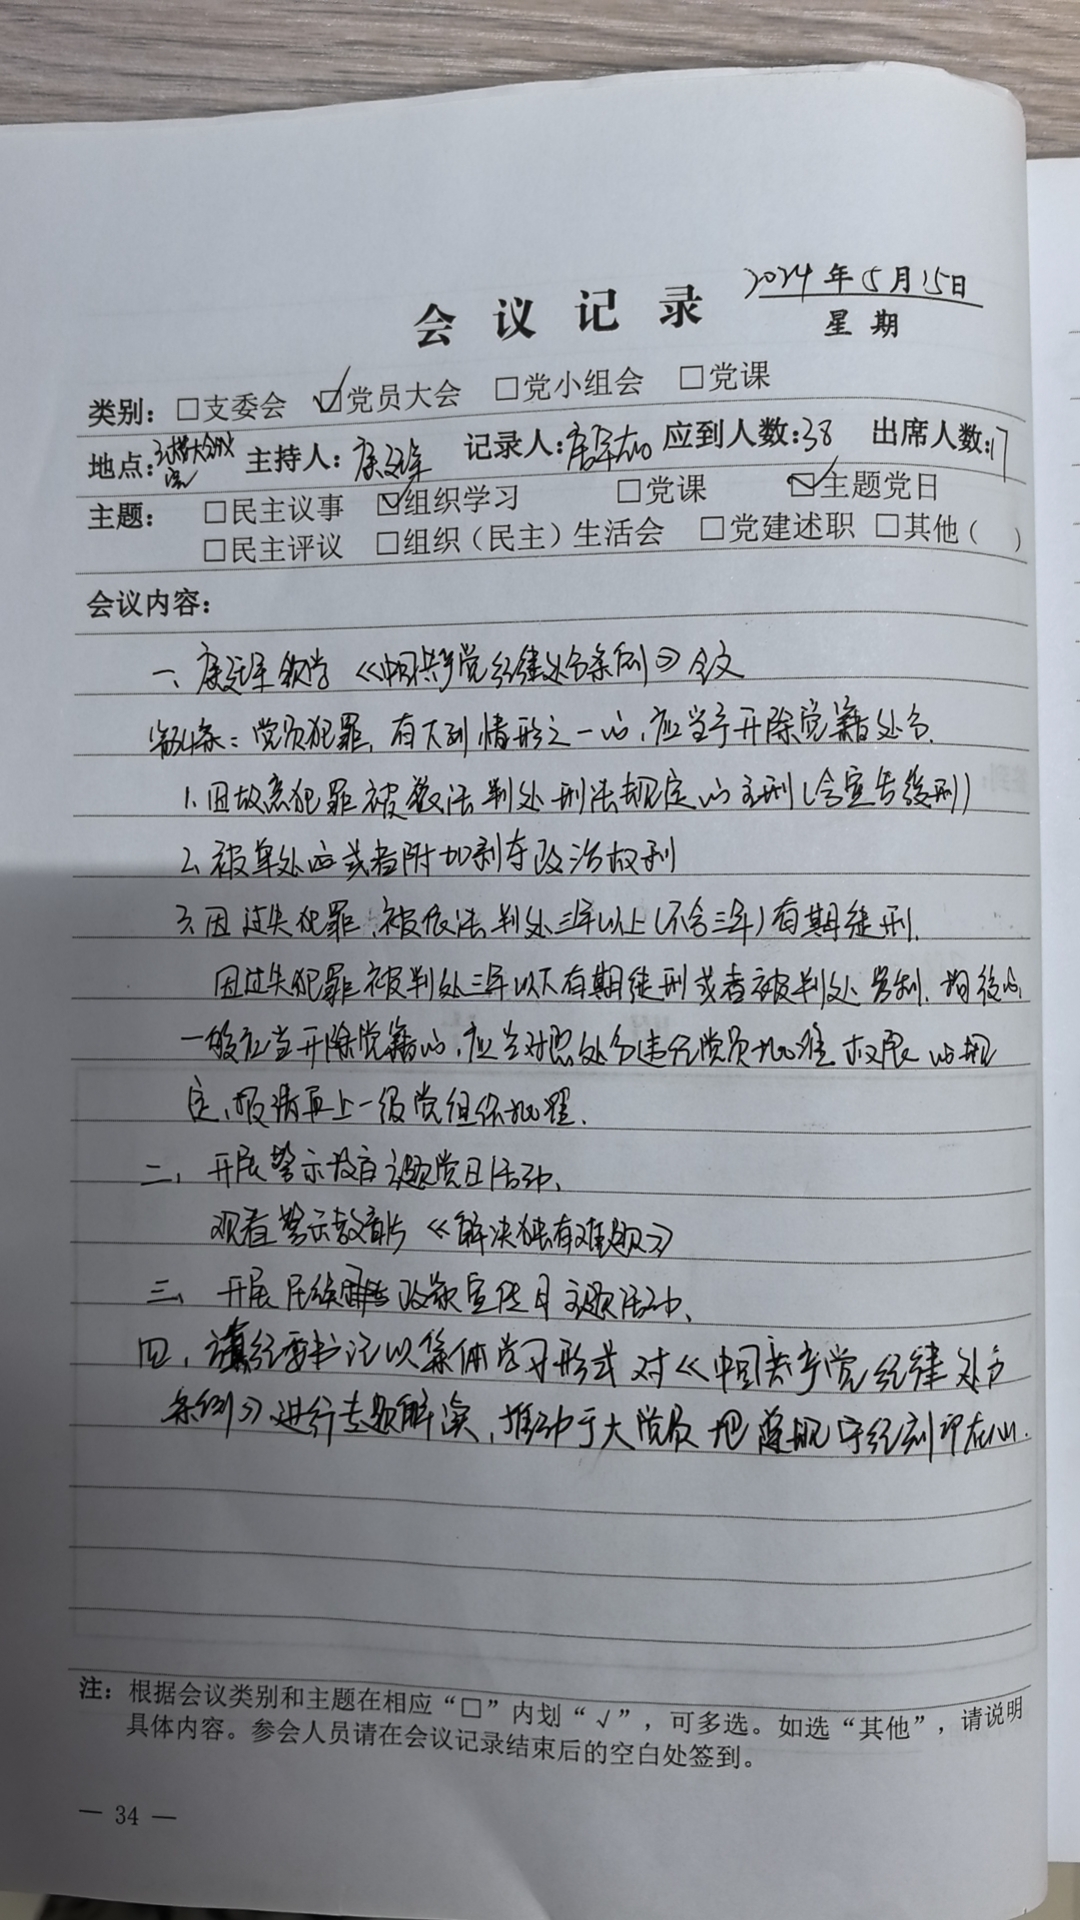 2024年5月15日
会议记录
星期
类别：□支委会 ☑党员大会 □党小组会 □党课
地点： 主持人：康 记录人： 应到人数：38 出席人数：17
主题： □民主议事 ☑组织学习 □党课 ☑主题党日
□民主评议 □组织（民主）生活会 □党建述职 □其他（ ）
会议内容：
一、康 军领学《中国共产党纪律处分条例》全文
条：党员犯罪，有下列情形之一的，应当予开除党籍处分.
1.因故意犯罪被依法判处刑法规定的主刑（含宣告缓刑）
2.被单处 或者附加剥夺政治权利
3.因过失犯罪，被依法判处三年以上（不含三年）有期徒刑.
因过失犯罪被判处三年以下有期徒刑或者被判处管制、拘役的，
一般应当开除党籍的，应当对照处分违纪党员批准权限的规
定，报请再上一级党组织批准.
二、开展警示教育主题党日活动、
观看警示教育片《解决独有难题》
三、开展民族 政策宣传月主题活动、
四、请纪委书记以集体学习形式对《中国共产党纪律处分
条例》进行专题解读，推动广大党员把遵规守纪刻印在心.
注：根据会议类别和主题在相应“□”内划“√”，可多选。如选“其他”，请说明
具体内容。参会人员请在会议记录结束后的空白处签到。
— 34 —